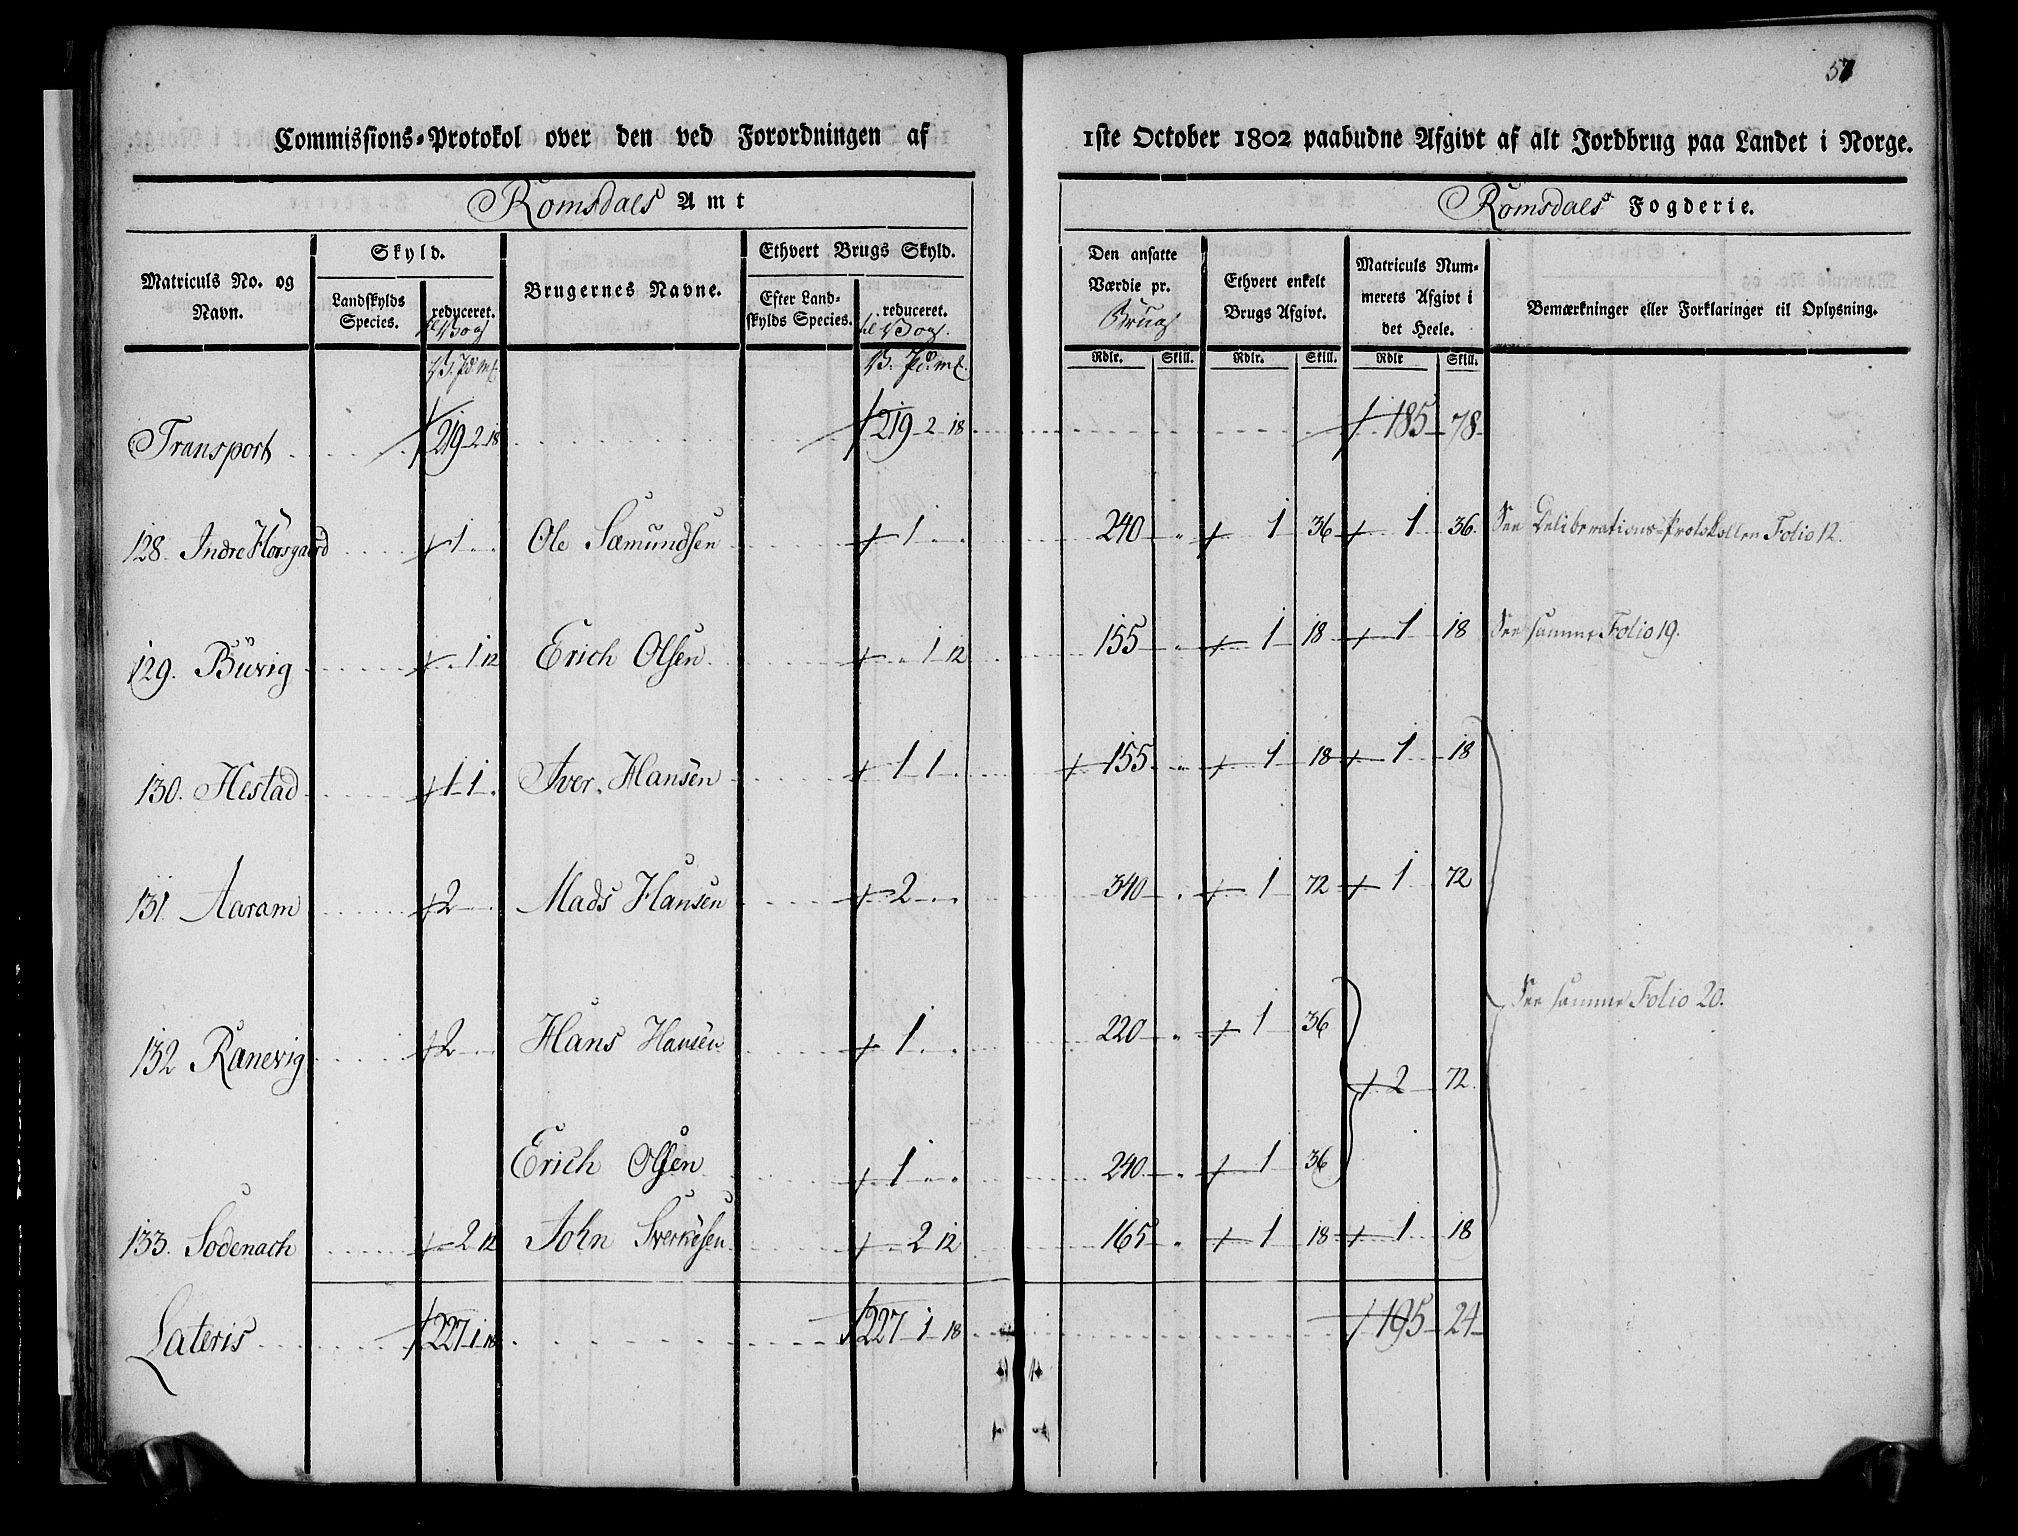 57
Commissions-Protokol over den ved Forordningen af 1ste October 1802 paabudne Afgivt af alt Jordbrug paa Landet i Norge.
Romsdals Amt
Romsdals Fogderie.
Matriculs No. og Navn.
Skyld.
Landskylds Species.
reduceret. til Vog
Brugernes Navne.
Ethvert Brugs Skyld.
Efter Landskylds Species.
reduceret. til Vog.
Den ansatte Værdie pr. Brug
Ethvert enkelt Brugs Afgivt.
Matriculs Nummerets Afgivt i det Heele.
Bemærkninger eller Forklaringer til Oplysning.
V. Pd. mk. V. Pd. mk. Rdlr. Skill. Rdlr. Skill. Rdlr Skill.
Transport 219 2 18 219 2 18 185 78
128. Indre Horsgaard 1 Ole Sæmundsen 1 240 1 36 1 36 See Deliberations-Protokollen Folio 12.
129. Buvig 1 12 Erich Olsen 1 12 155 1 18 1 18 See samme Folio 19.
130. Hestad 1 1 Iver Hansen 1 1 155 1 18 1 18
131 Aaram 2 Mads Hansen 2 340 1 72 1 72
See samme Folio 20.
132 Ranevig 2 Hans Hansen 1 220 1 36
2 72
Erich Olsen 1 240 1 36
133. Sodenach 2 12 John Sverkesen 2 12 165 1 18 1 18
Lateris 227 1 18 227 1 18 195 24